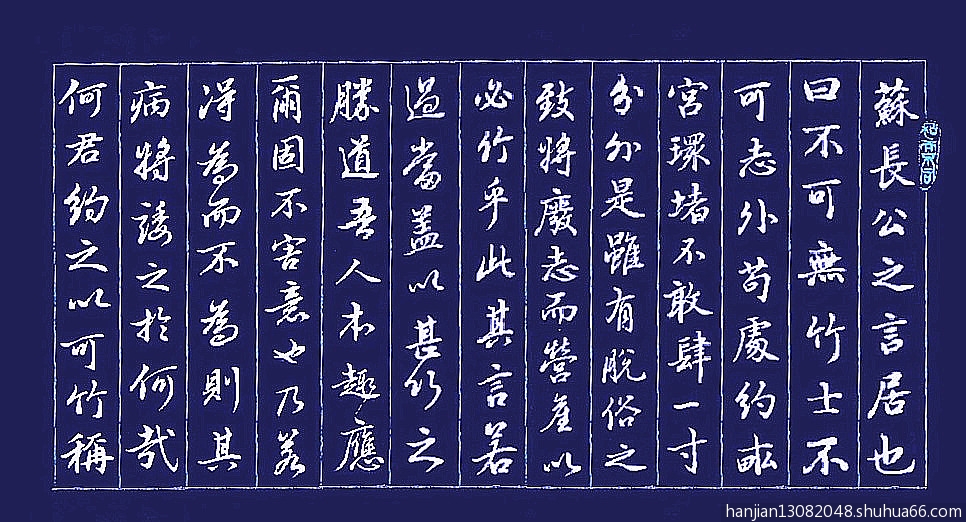 蘇長公之言居也
曰不可無竹士不
可志外苟處約畝
宮環堵不敢肆一寸
分外是雖有脫俗之
致將廢志而營產以
必竹乎此其言若
過當蓋以甚行之
勝道吾人本趣應
爾固不害意也乃若
得為而不為則其
病將諉之於何哉
何君約之以可竹稱
hanjian13082048.shuhua66.com